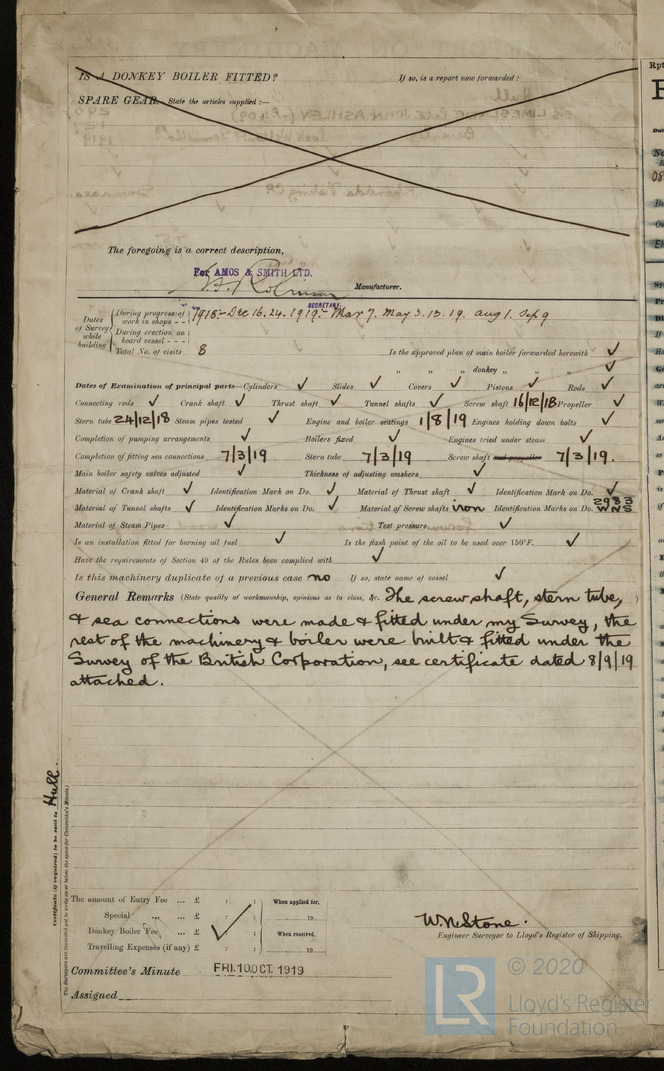 IS A DONKEY BOILER FITTED? If so, is a report now forwarded?
SPARE GEAR. State the articles supplied:—
The foregoing is a correct description,
For AMOS & SMITH LTD.
Manufacturer.
SECRETARY.
Dates of Survey while building
During progress of work in shops - - 1918:- Dec 16. 24. 1919:- Mar 7. May 3. 13. 19. Aug 1. Sep 9
During erection on board vessel - - -
Total No. of visits 8 Is the approved plan of main boiler forwarded herewith ✓
" " " donkey " " ✓
Dates of Examination of principal parts—Cylinders ✓ Slides ✓ Covers ✓ Pistons ✓ Rods ✓
Connecting rods ✓ Crank shaft ✓ Thrust shaft ✓ Tunnel shafts ✓ Screw shaft 16/12/18 Propeller ✓
Stern tube 24/12/18 Steam pipes tested ✓ Engine and boiler seatings 1/8/19 Engines holding down bolts ✓
Completion of pumping arrangements ✓ Boilers fixed ✓ Engines tried under steam ✓
Completion of fitting sea connections 7/3/19 Stern tube 7/3/19 Screw shaft and propeller 7/3/19.
Main boiler safety valves adjusted ✓ Thickness of adjusting washers ✓
Material of Crank shaft ✓ Identification Mark on Do. ✓ Material of Thrust shaft ✓ Identification Mark on Do. ✓
Material of Tunnel shafts ✓ Identification Marks on Do. ✓ Material of Screw shafts iron Identification Marks on Do. 2983 WNS
Material of Steam Pipes ✓ Test pressure ✓
Is an installation fitted for burning oil fuel ✓ Is the flash point of the oil to be used over 150°F. ✓
Have the requirements of Section 49 of the Rules been complied with ✓
Is this machinery duplicate of a previous case no If so, state name of vessel ✓
General Remarks (State quality of workmanship, opinions as to class, &c. The screw shaft, stern tube,
& sea connections were made & fitted under my Survey, the
rest of the machinery & boiler were built & fitted under the
Survey of the British Corporation, see certificate dated 8/9/19
attached.
Certificate (if required) to be sent to Hull.
The Surveyors are requested not to write on or below the space for Committee's Minute.
The amount of Entry Fee ... £ : : When applied for,
Special ... £ : : 19
Donkey Boiler Fee ... £ : : When received,
Travelling Expenses (if any) £ : : 19
W.N. Stone.
Engineer Surveyor to Lloyd's Register of Shipping.
Committee's Minute FRI. 10 OCT. 1919
Assigned
LR © 2020
Lloyd's Register
Foundation